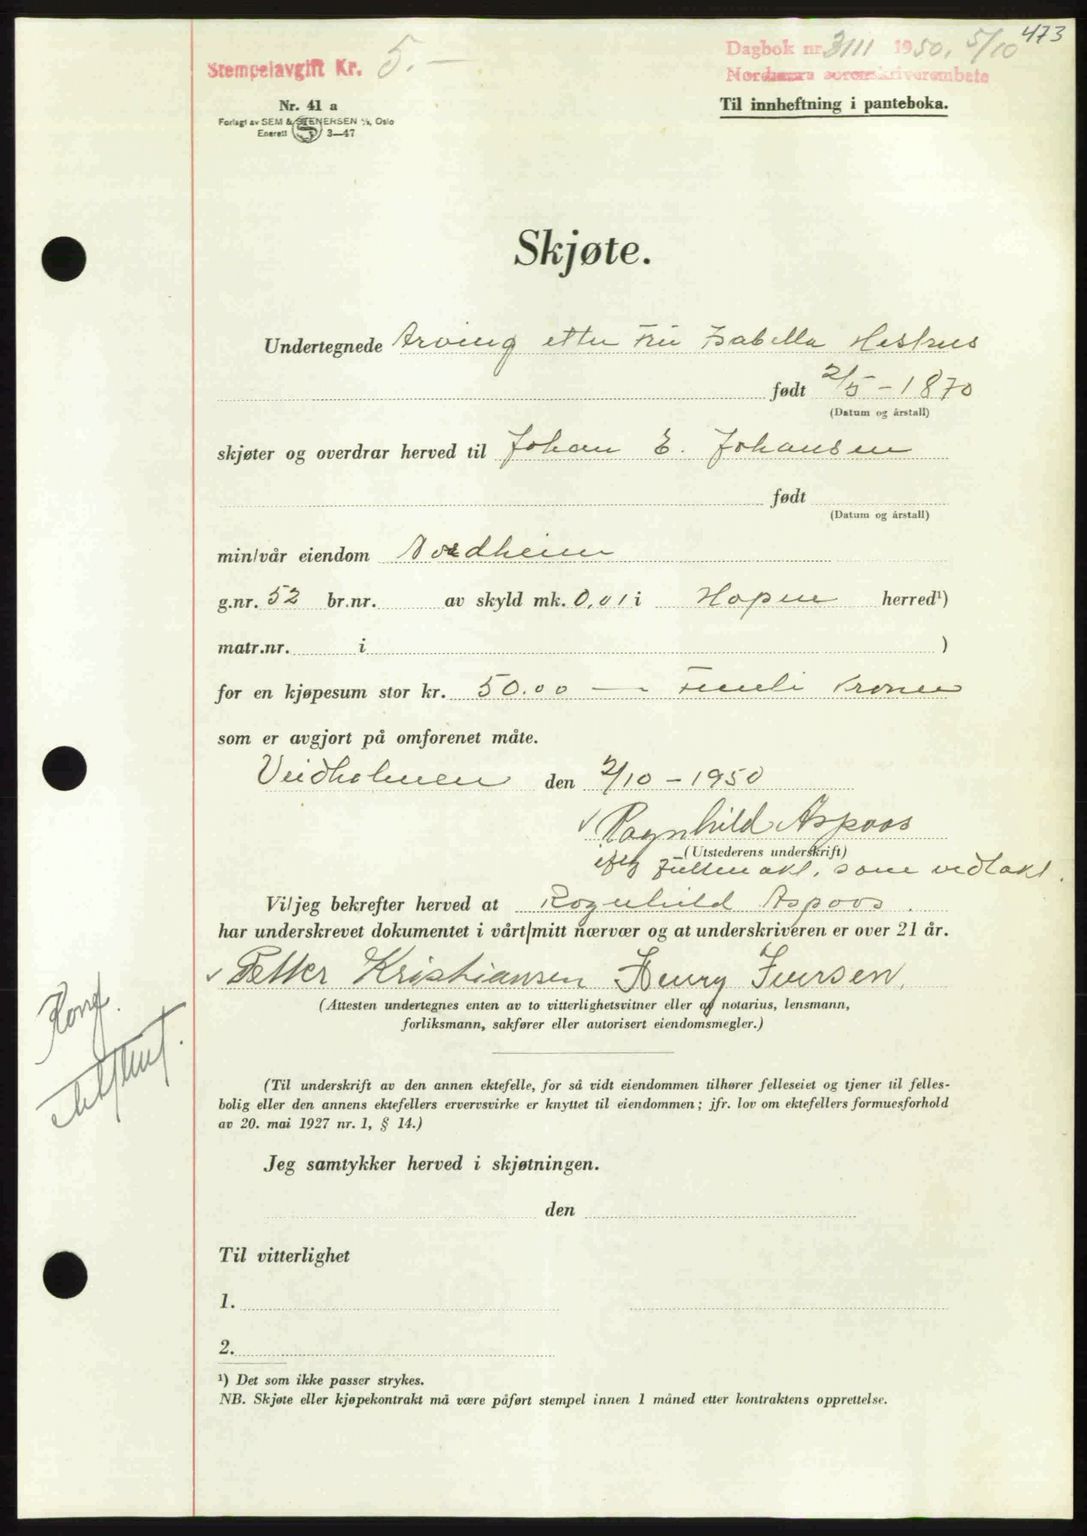 473
Stempelavgift Kr. 5.—
Dagbok nr. 3111 1950, 5/10
Nordmøre sorenskriverembete
Nr. 41 a
Forlagt av SEM & STENERSEN A/S, Oslo
Enerett S 3—47
Til innheftning i panteboka.
Skjøte.
Undertegnede Arving etter Fru Isabella
født 2/5 - 1870
(Datum og årstall)
skjøter og overdrar herved til Johan E. Johansen
født
(Datum og årstall)
min/vår eiendom Nordheim
g.nr. 52 br.nr. av skyld mk. 0,01 i Hopen herred¹)
matr.nr. i )
for en kjøpesum stor kr. 50.00 — Femti Kroner
som er avgjort på omforenet måte.
Veidholmen den 2/10 - 1950
Ragnhild Aspoos
(Utstederens underskrift)
iflg fullmakt, som vedlakt.
Vi/jeg bekrefter herved at Ragnhild Aspoos
har underskrevet dokumentet i vårt/mitt nærvær og at underskriveren er over 21 år.
Petter Kristiansen Henry Iversen.
(Attesten undertegnes enten av to vitterlighetsvitner eller af notarius, lensmann,
forliksmann, sakfører eller autorisert eiendomsmegler.)
(Til underskrift av den annen ektefelle, for så vidt eiendommen tilhører felleseiet og tjener til felles-
bolig eller den annens ektefellers ervervsvirke er knyttet til eiendommen; jfr. lov om ektefellers formuesforhold
av 20. mai 1927 nr. 1, § 14.)
Jeg samtykker herved i skjøtningen.
den
Til vitterlighet
1.
2.
¹) Det som ikke passer strykes.
NB. Skjøte eller kjøpekontrakt må være påført stempel innen 1 måned etter kontraktens opprettelse.